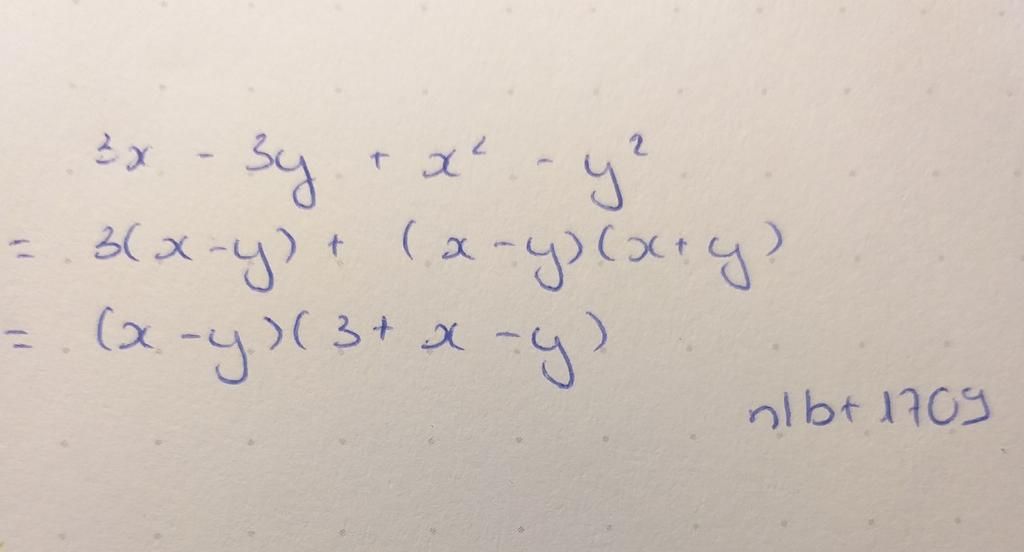 3x - 3y + x² - y²
= 3(x-y) + (x-y)(x+y)
= (x-y)(3+x-y)
nlbt 1709